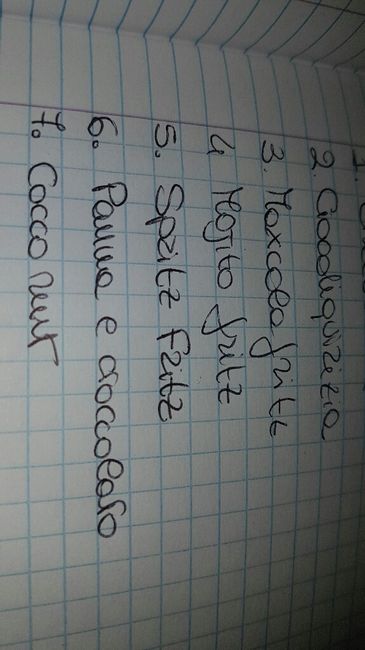 1.
2. Ciocoliquirizia
3. Maxcola fritz
4 Mojito fritz
5. Spritz Fritz
6. Panna e cioccolato
7. Cocco nut